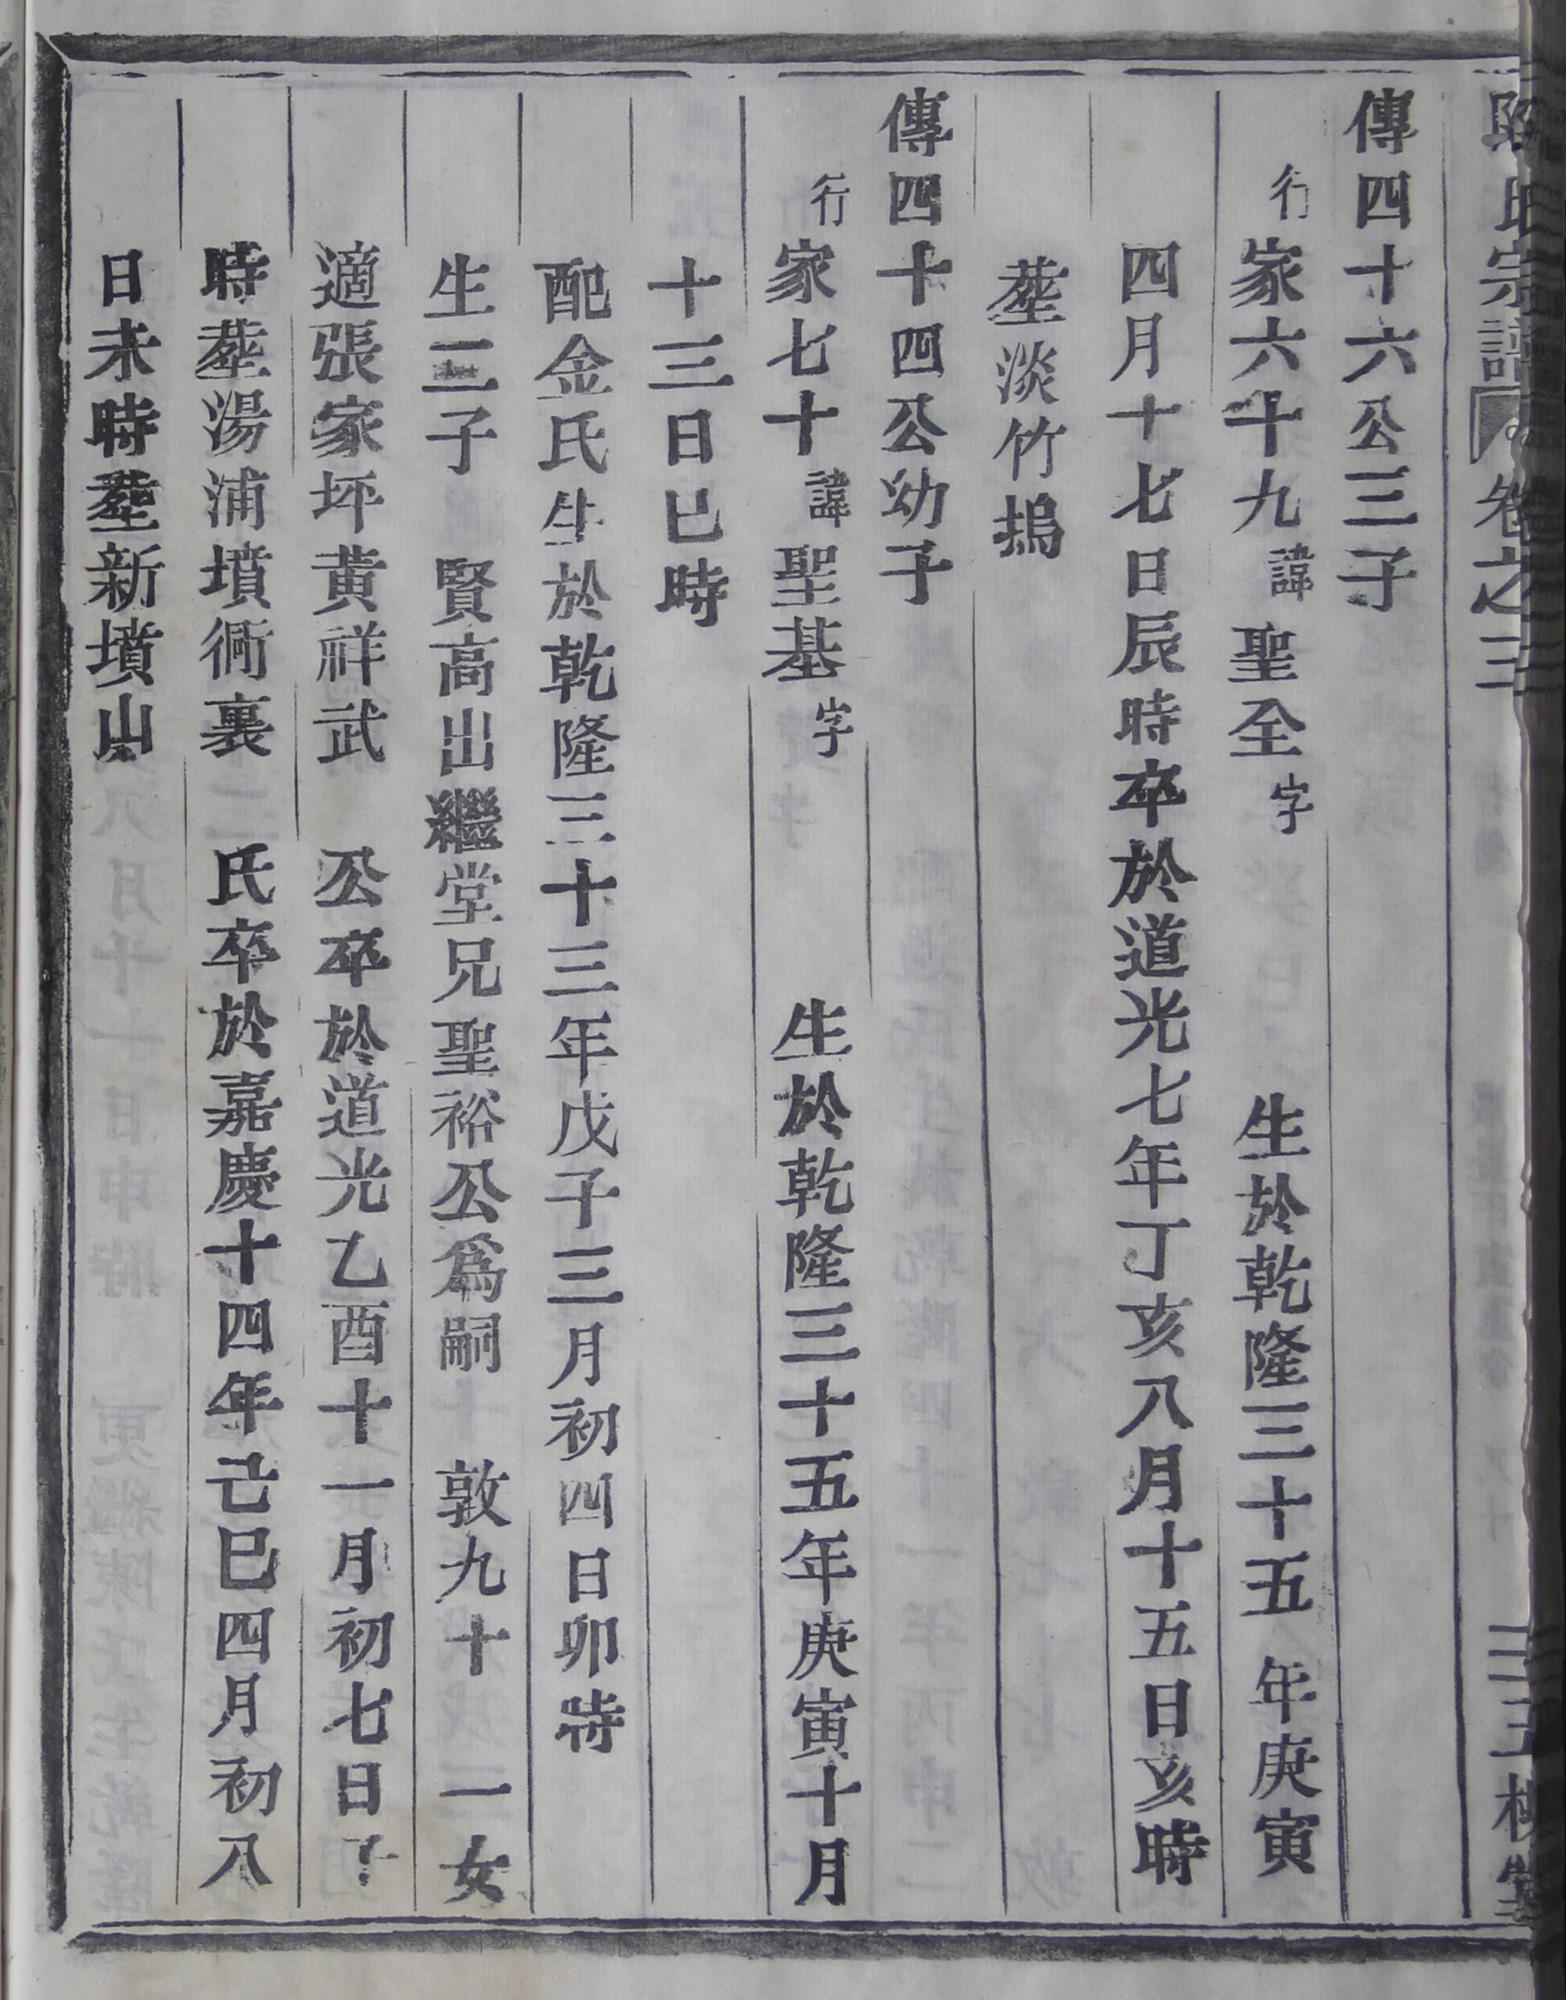 氏宗譜 卷之三
傳四十六公三子
行家六十九諱聖全字 生於乾隆三十五年庚寅
四月十七日辰時卒於道光七年丁亥八月十五日亥時
塟淡竹塢
傳四十四公幼子
行家七十諱聖基字 生於乾隆三十五年庚寅十月
十三日巳時
配金氏生於乾隆三十三年戊子三月初四日卯時
生三子 賢高出繼堂兄聖裕公爲嗣 敦九十 一女
適張家坪黃祥武 公卒於道光乙酉十一月初七日子
時塟湯浦墳衕裏 氏卒於嘉慶十四年己巳四月初八
日未時塟新墳山